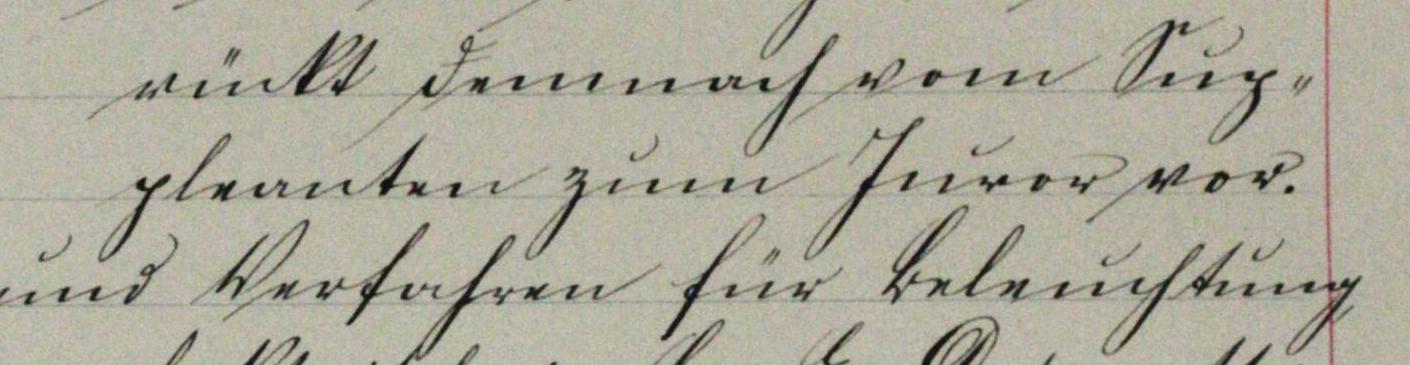 rückt demnach vom Sup„
pleanten zum Juror vor.
und Verfahren für Beleuchtung,